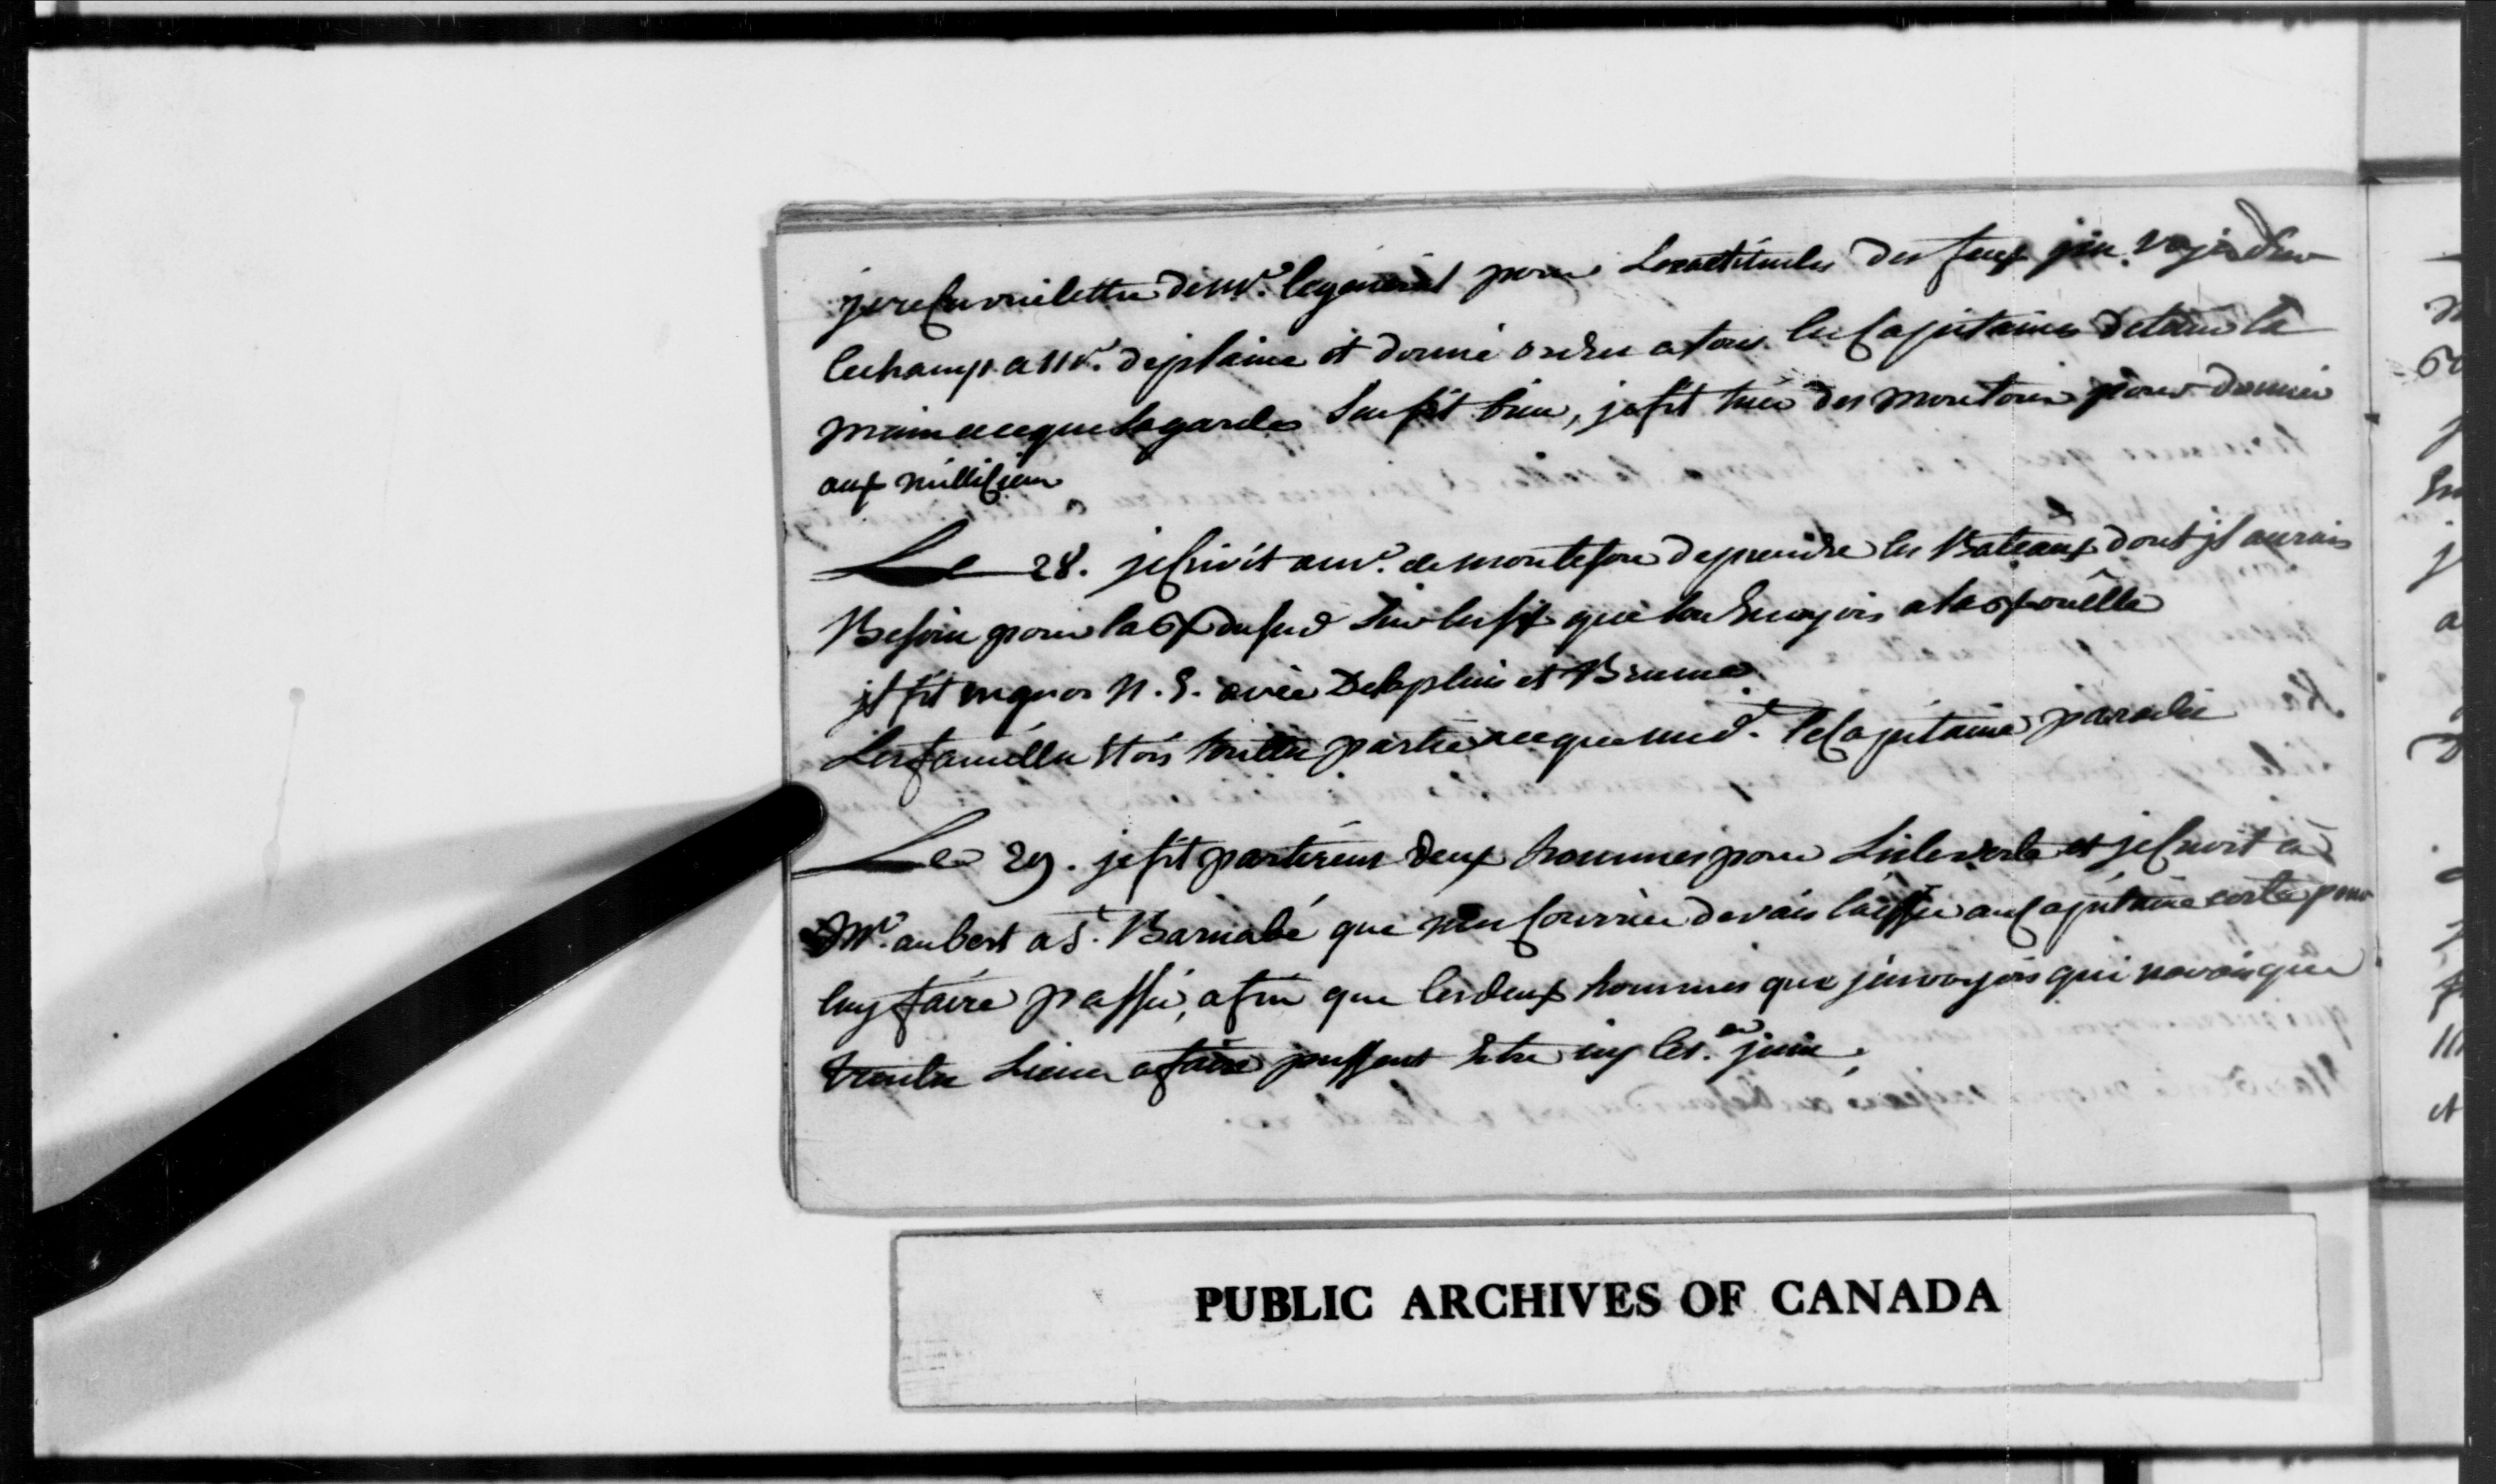 je reçu une lettre de Mr. le general pour Lexactitudes des feux jen voyé sur
le champ a Mr. deplaine et donné ordres a tous les Capitaines detenir la
main aceque la gardes Sen fit bien, je fit tuer des moutons pour donner
aux milliciens
Le 28. jecrivit a mr. de montesson de prendre les Bateaux dont jl aurais
Besoin pour la du sud Sur les que lon Envoyois a la
jl fit N. E. avec Delaplein et Brume
Les famille Etois toutte partie aceque me dt. le Capitaine paradis
Le 29. je fit partireur deux hommes pour Lisle verte et jecrivit a
Mr. aubert a St. Barnabé que mon Courrier devais laisser au Capitaine coste pour
luy faire passer, afin que les deux hommes que jenvoyois qui navois que
trente Lieus a faire pussent Etre icy le 1.er juin.
PUBLIC ARCHIVES OF CANADA